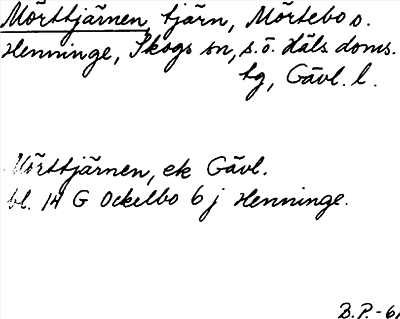 Mörttjärnen, tjärn, Mörtebo o.
Henninge, Skogs sn, s.ö. Häls doms.
tg, Gävl. l.
Mörttjärnen, ek Gävl.
bl. 14 G Ockelbo 6 j Henninge.
B.P.-61